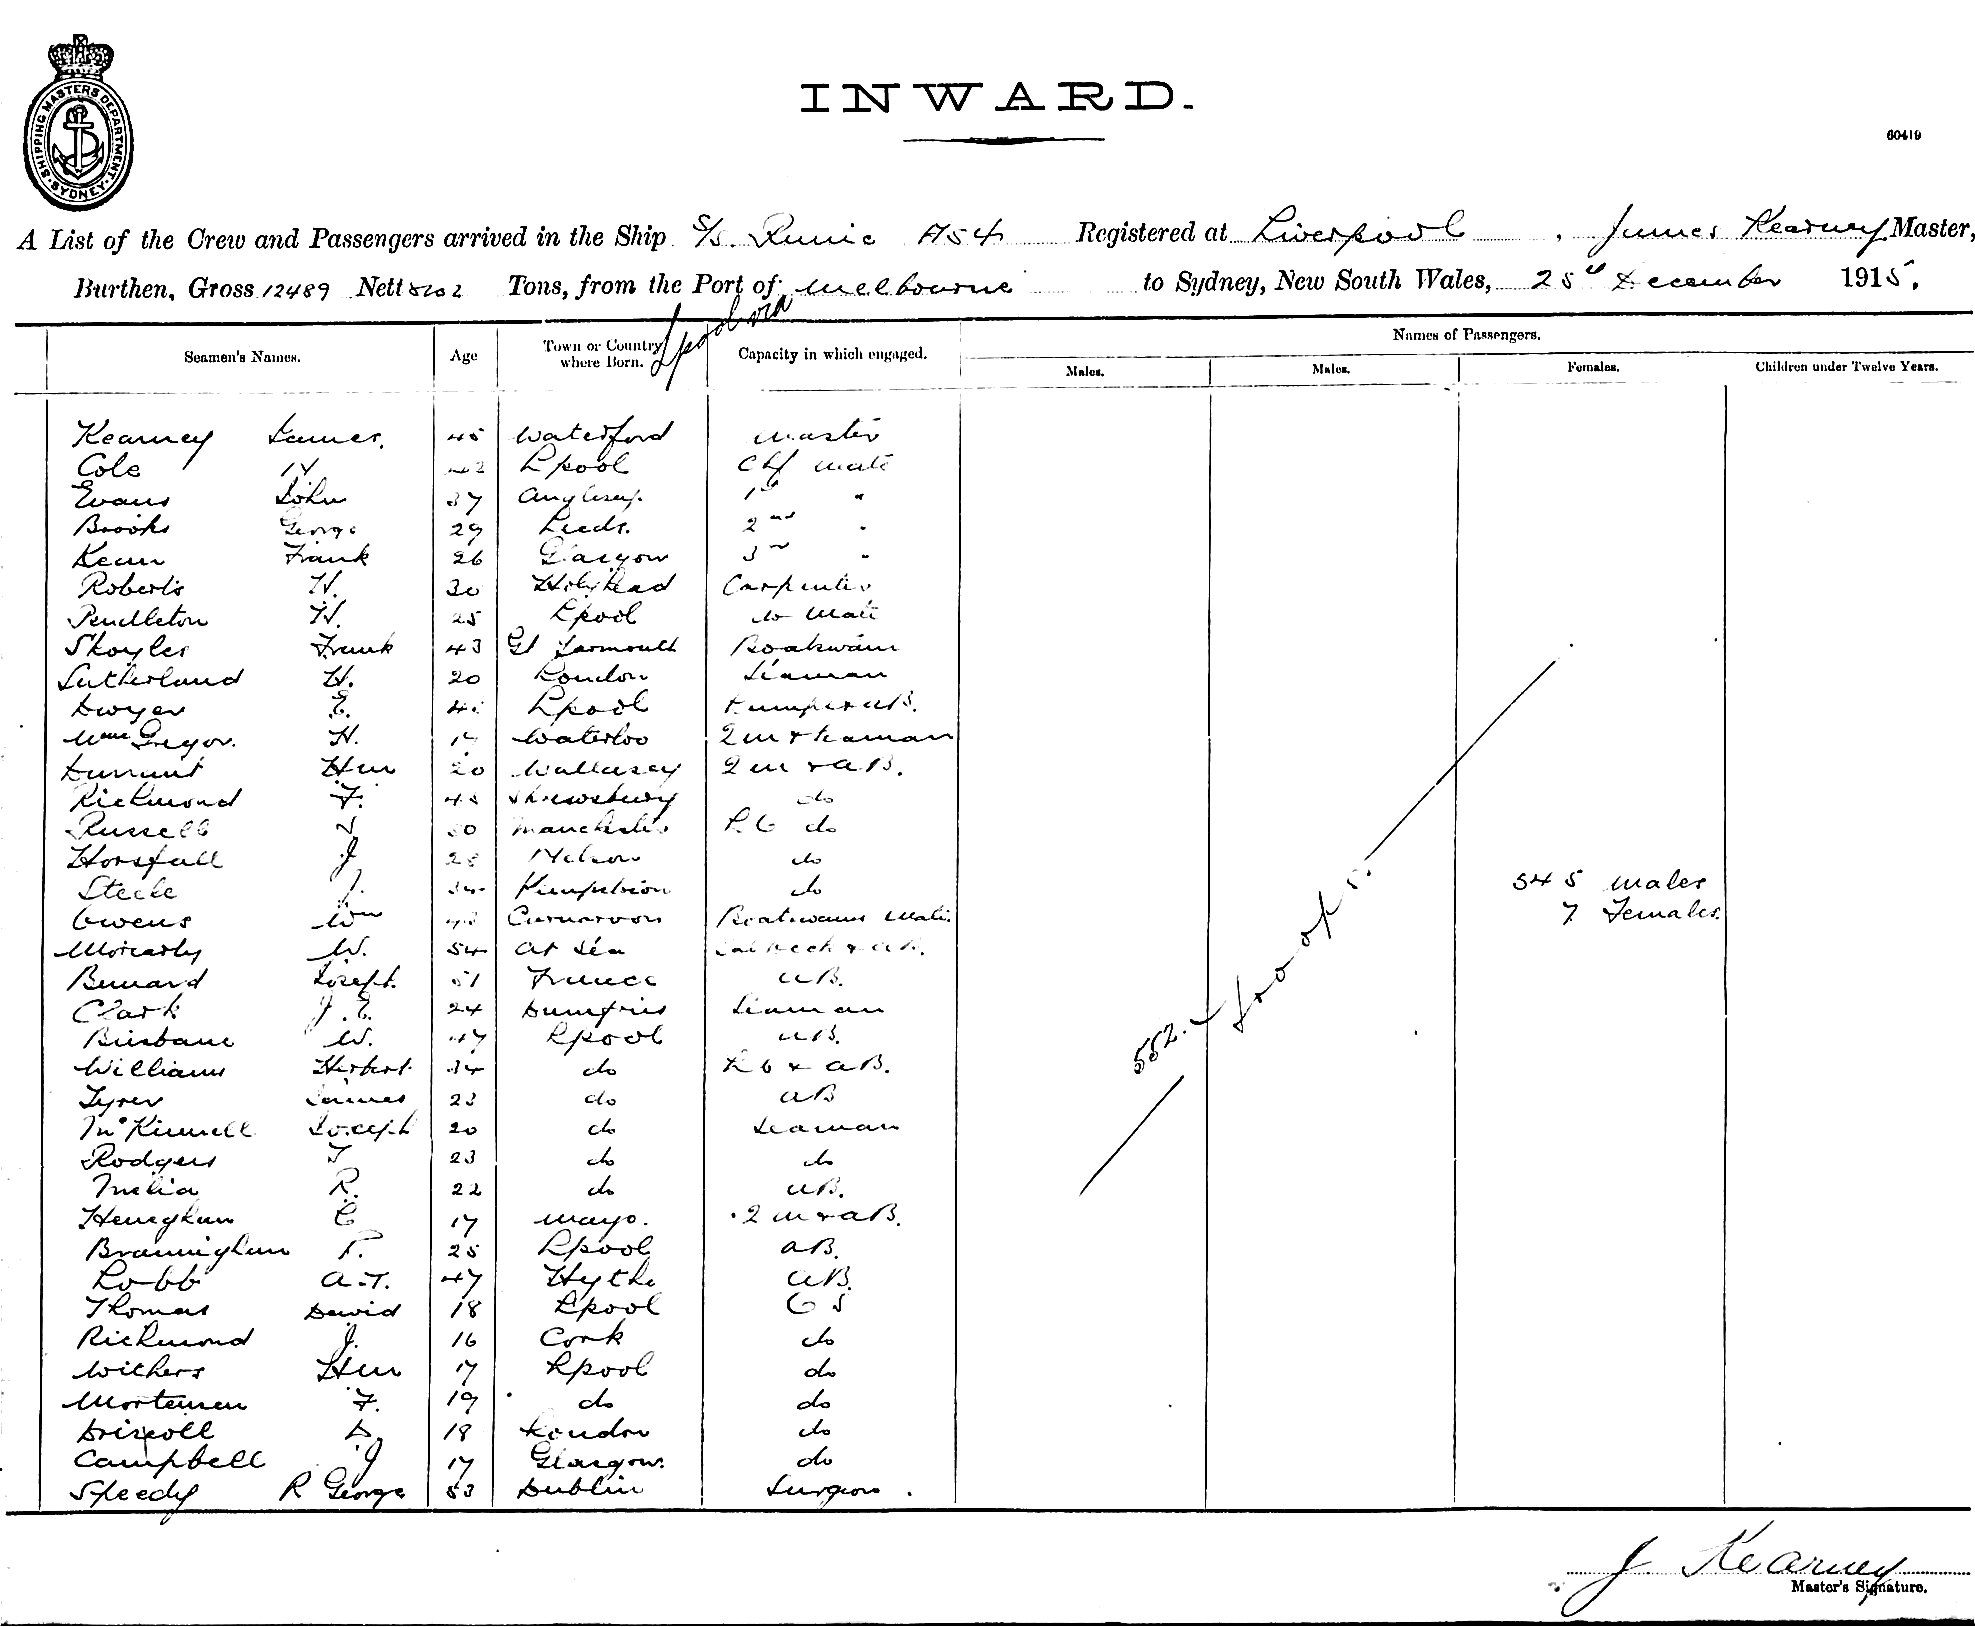 SHIPPING MASTERS DEPARTMENT. SYDNEY.
INWARD.
60419
A List of the Crew and Passengers arrived in the Ship S/S. Runic A54 Registered at Liverpool, James Kearney Master,
Burthen, Gross 12489 Nett Tons, from the Port of L'pool via Melbourne to Sydney, New South Wales, December 1915.
Seamen's Names. Age Town or Country where Born. Capacity in which engaged. Names of Passengers.
Males. Males. Females. Children under Twelve Years.
Kearney James. 45 Waterford Master
Cole 42 Lpool Chf Mate
Evans John 37 Anglesey. 1st "
Brooks George 29 Leeds. 2nd "
Kean Frank 26 Glasgow 3rd "
Roberts H. 30 Holyhead Carpenter
Pendleton H. 25 Lpool do Mate
Skoyles Frank 43 Gt Yarmouth Boatswain
Sutherland H. 20 London Seaman
Dwyer E. Lpool Lamps & AB.
Gregor. H. Waterloo 2m & Seaman
Durrant Hy 20 Wallasey 2m & AB.
Richmond F. Shrewsbury do
Russell J Manchester L6 do
Horsfall J 28 Nelson do
Steele J. 34 do
545 males
Owens Wm Carnarvon Boatswains Mate.
7 Females.
Moriarty W. 54 At Sea
Joseph. 51 France AB.
Clark J.E. 24 Dumfries Seaman
Brisbane W. 47 Lpool AB.
552. Troops.
Williams Herbert. 34 do L6 & AB.
Tyrer James 23 do AB
McKinnell Joseph 20 do Seaman
Rodgers J 23 do do
Melia R. 22 do AB.
Heneghan C 17 Mayo. 2m & AB.
P. 25 Lpool AB.
Lobb A.T. 47 Hythe AB.
Thomas David 18 Lpool
Richmond J. 16 Cork do
Withers Hy 17 Lpool do
Mortensen F. 19 do do
Driscoll D. 18 London do
Campbell J 17 Glasgow. do
Speedy R George 53 Dublin Surgeon.
J Kearney
Master's Signature.